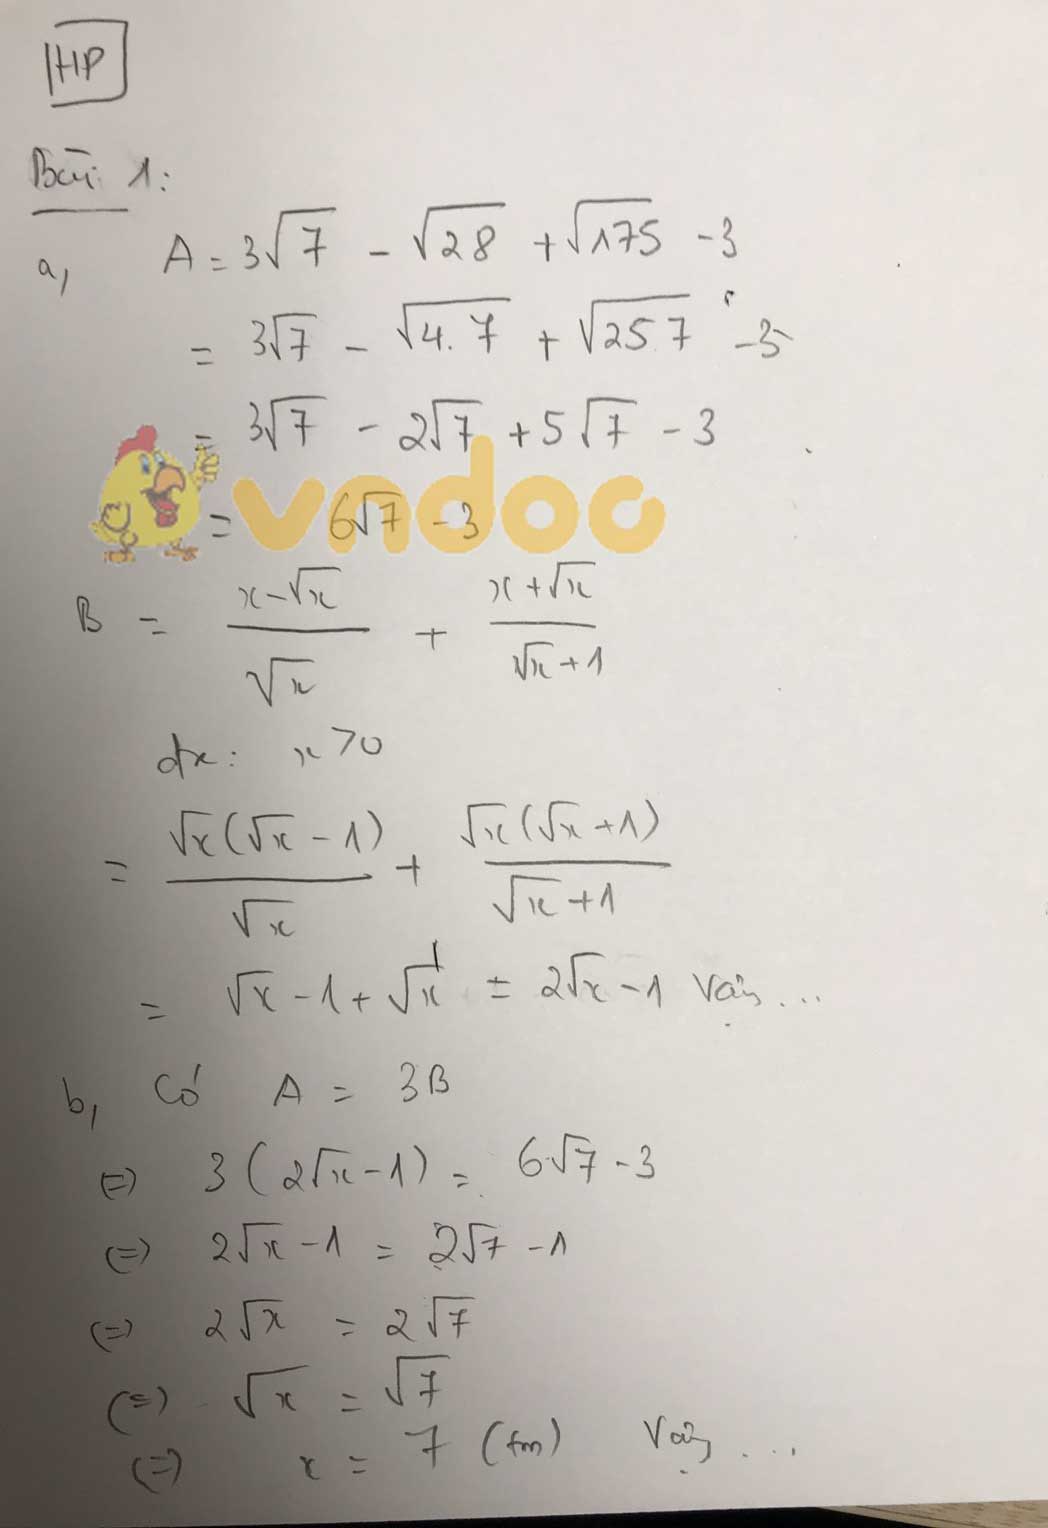 HP
Bài 1:
a, A = 3√7 - √28 + √175 - 3
= 3√7 - √4.7 + √25.7 - 3
= 3√7 - 2√7 + 5√7 - 3
vndoc
= 6√7 - 3
B = (x-√x)/√x + (x+√x)/(√x+1)
đk: x > 0
= √x(√x-1)/√x + √x(√x+1)/(√x+1)
= √x - 1 + √x = 2√x - 1 Vậy ...
b, Có A = 3B
(=) 3(2√x-1) = 6√7 - 3
(=) 2√x - 1 = 2√7 - 1
(=) 2√x = 2√7
(=) √x = √7
(=) x = 7 (tm) Vậy ...